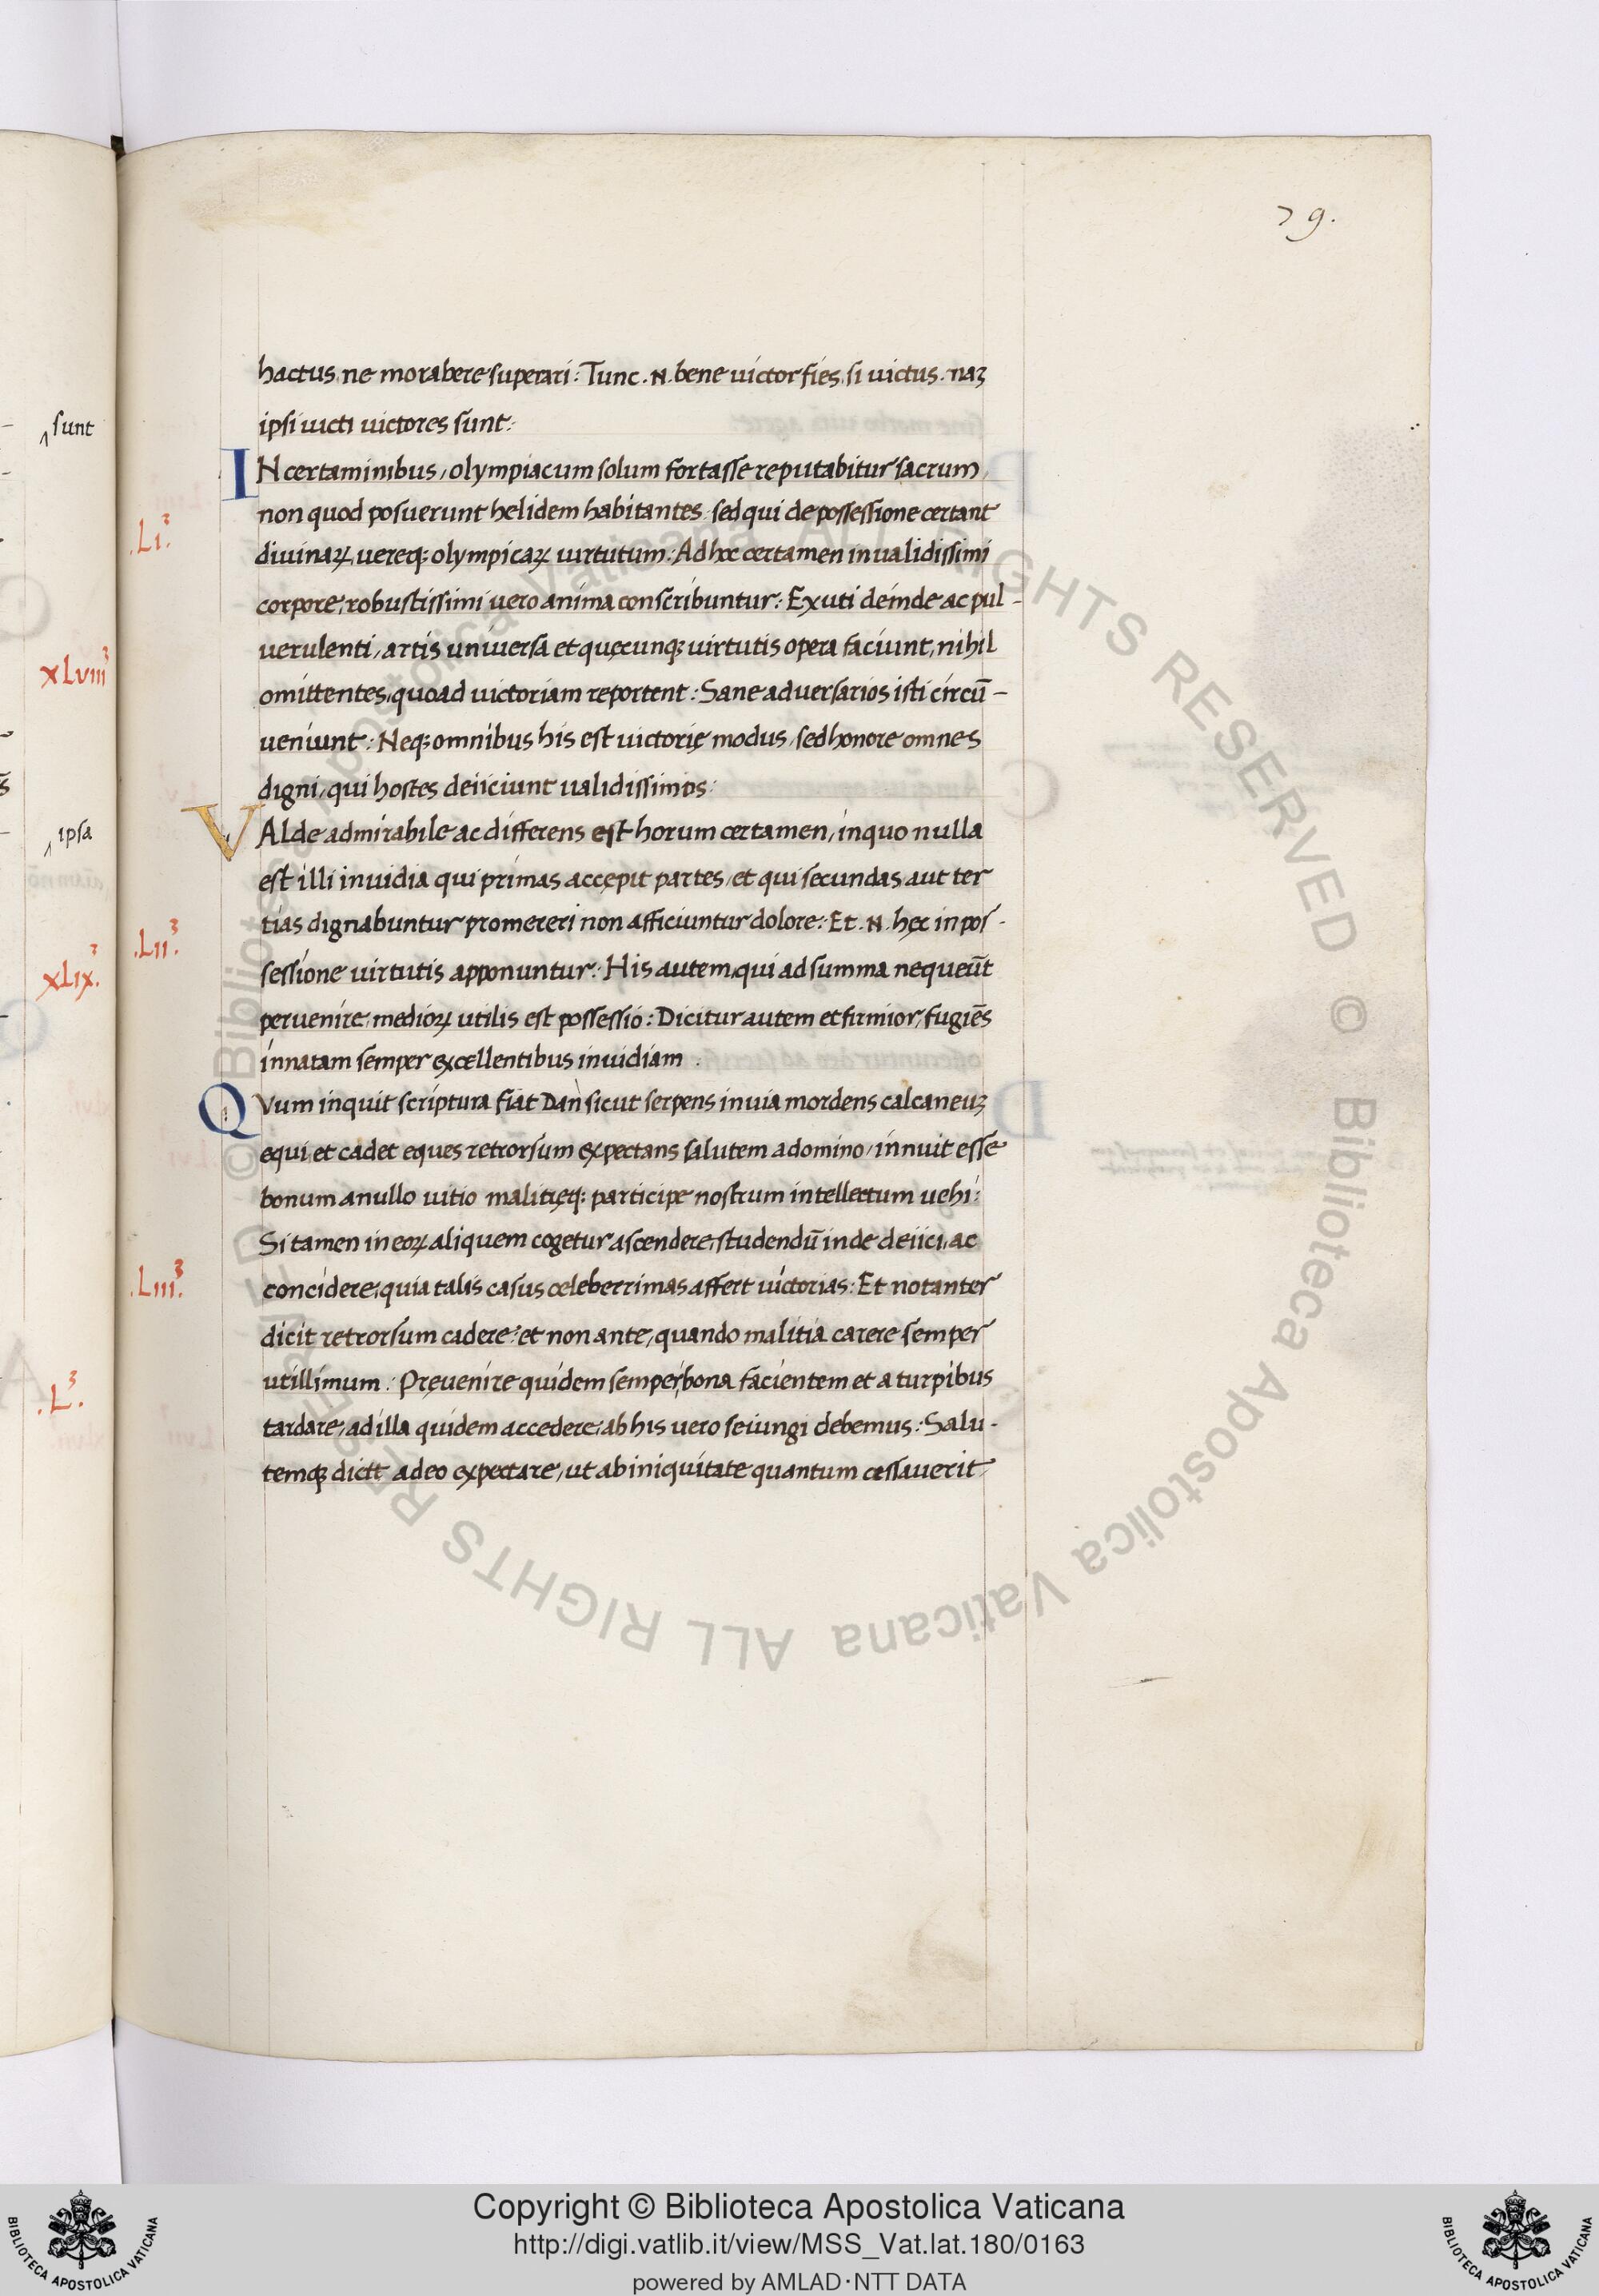 79.
hactus, ne morabere superari: Tunc .N. bene uictor fies, si uictus. naʒ
ipsi uicti uictores sunt:
IN certaminibus, olympiacum solum fortasse reputabitur sacrum,
non quod posuerunt helidem habitantes, sed qui de possessione certant
diuinaꝝ, uereqꝫ olympicaꝝ uirtutum: Ad hoc certamen inualidissimi
corpore, robustissimi uero anima conscribuntur: Exuti deinde ac pul-
uerulenti, artis uniuersa et quęcunqꝫ uirtutis opera faciunt, nihil
omittentes, quoad uictoriam reportent: Sane aduersarios isti circū-
ueniunt: Neqꝫ omnibus his est uictorię modus, sed honore omnes
digni, qui hostes deiiciunt ualidissimos:
VAlde admirabile ac differens est horum certamen, in quo nulla
est illi inuidia qui primas accępit partes, et qui secundas aut ter
tias dignabuntur promereri non afficiuntur dolore: Et .N. hęc in pos-
sessione uirtutis apponuntur: His autem, qui ad summa nequeūt
peruenire, medioꝝ utilis est possessio: Dicitur autem et firmior, fugiēs
innatam semper excellentibus inuidiam.
QVum inquit scriptura fiat Dan sicut serpens in uia mordens calcaneuʒ
equi, et cadet eques retrorsum expectans salutem a domino, innuit esse
bonum a nullo uitio malitięqꝫ participe nostrum intellectum uehi:
Si tamen in eoꝝ aliquem cogetur ascendere, studendū inde deiici, ac
concidere, quia talis casus celeberrimas affert uictorias: Et notanter
dicit retrorsum cadere, et non ante, quando malitia carere semper
utillimum: Pręuenire quidem semper bona facientem et a turpibus
tardare, ad illa quidem accedere, ab his uero seiungi debemus: Salu-
temqꝫ dicit adeo expectare, ut ab iniquitate quantum cessauerit,
.Li.³
.Lii.³
.Liii.³
sunt
xLviii³
ipsa
xLix.³
.L.³
© Biblioteca Apostolica Vaticana ALL RIGHTS RESERVED © Biblioteca Apostolica Vaticana ALL RIGHTS RESERVED
Copyright © Biblioteca Apostolica Vaticana
http://digi.vatlib.it/view/MSS_Vat.lat.180/0163
powered by AMLAD·NTT DATA
BIBLIOTECA APOSTOLICA VATICANA
BIBLIOTECA APOSTOLICA VATICANA